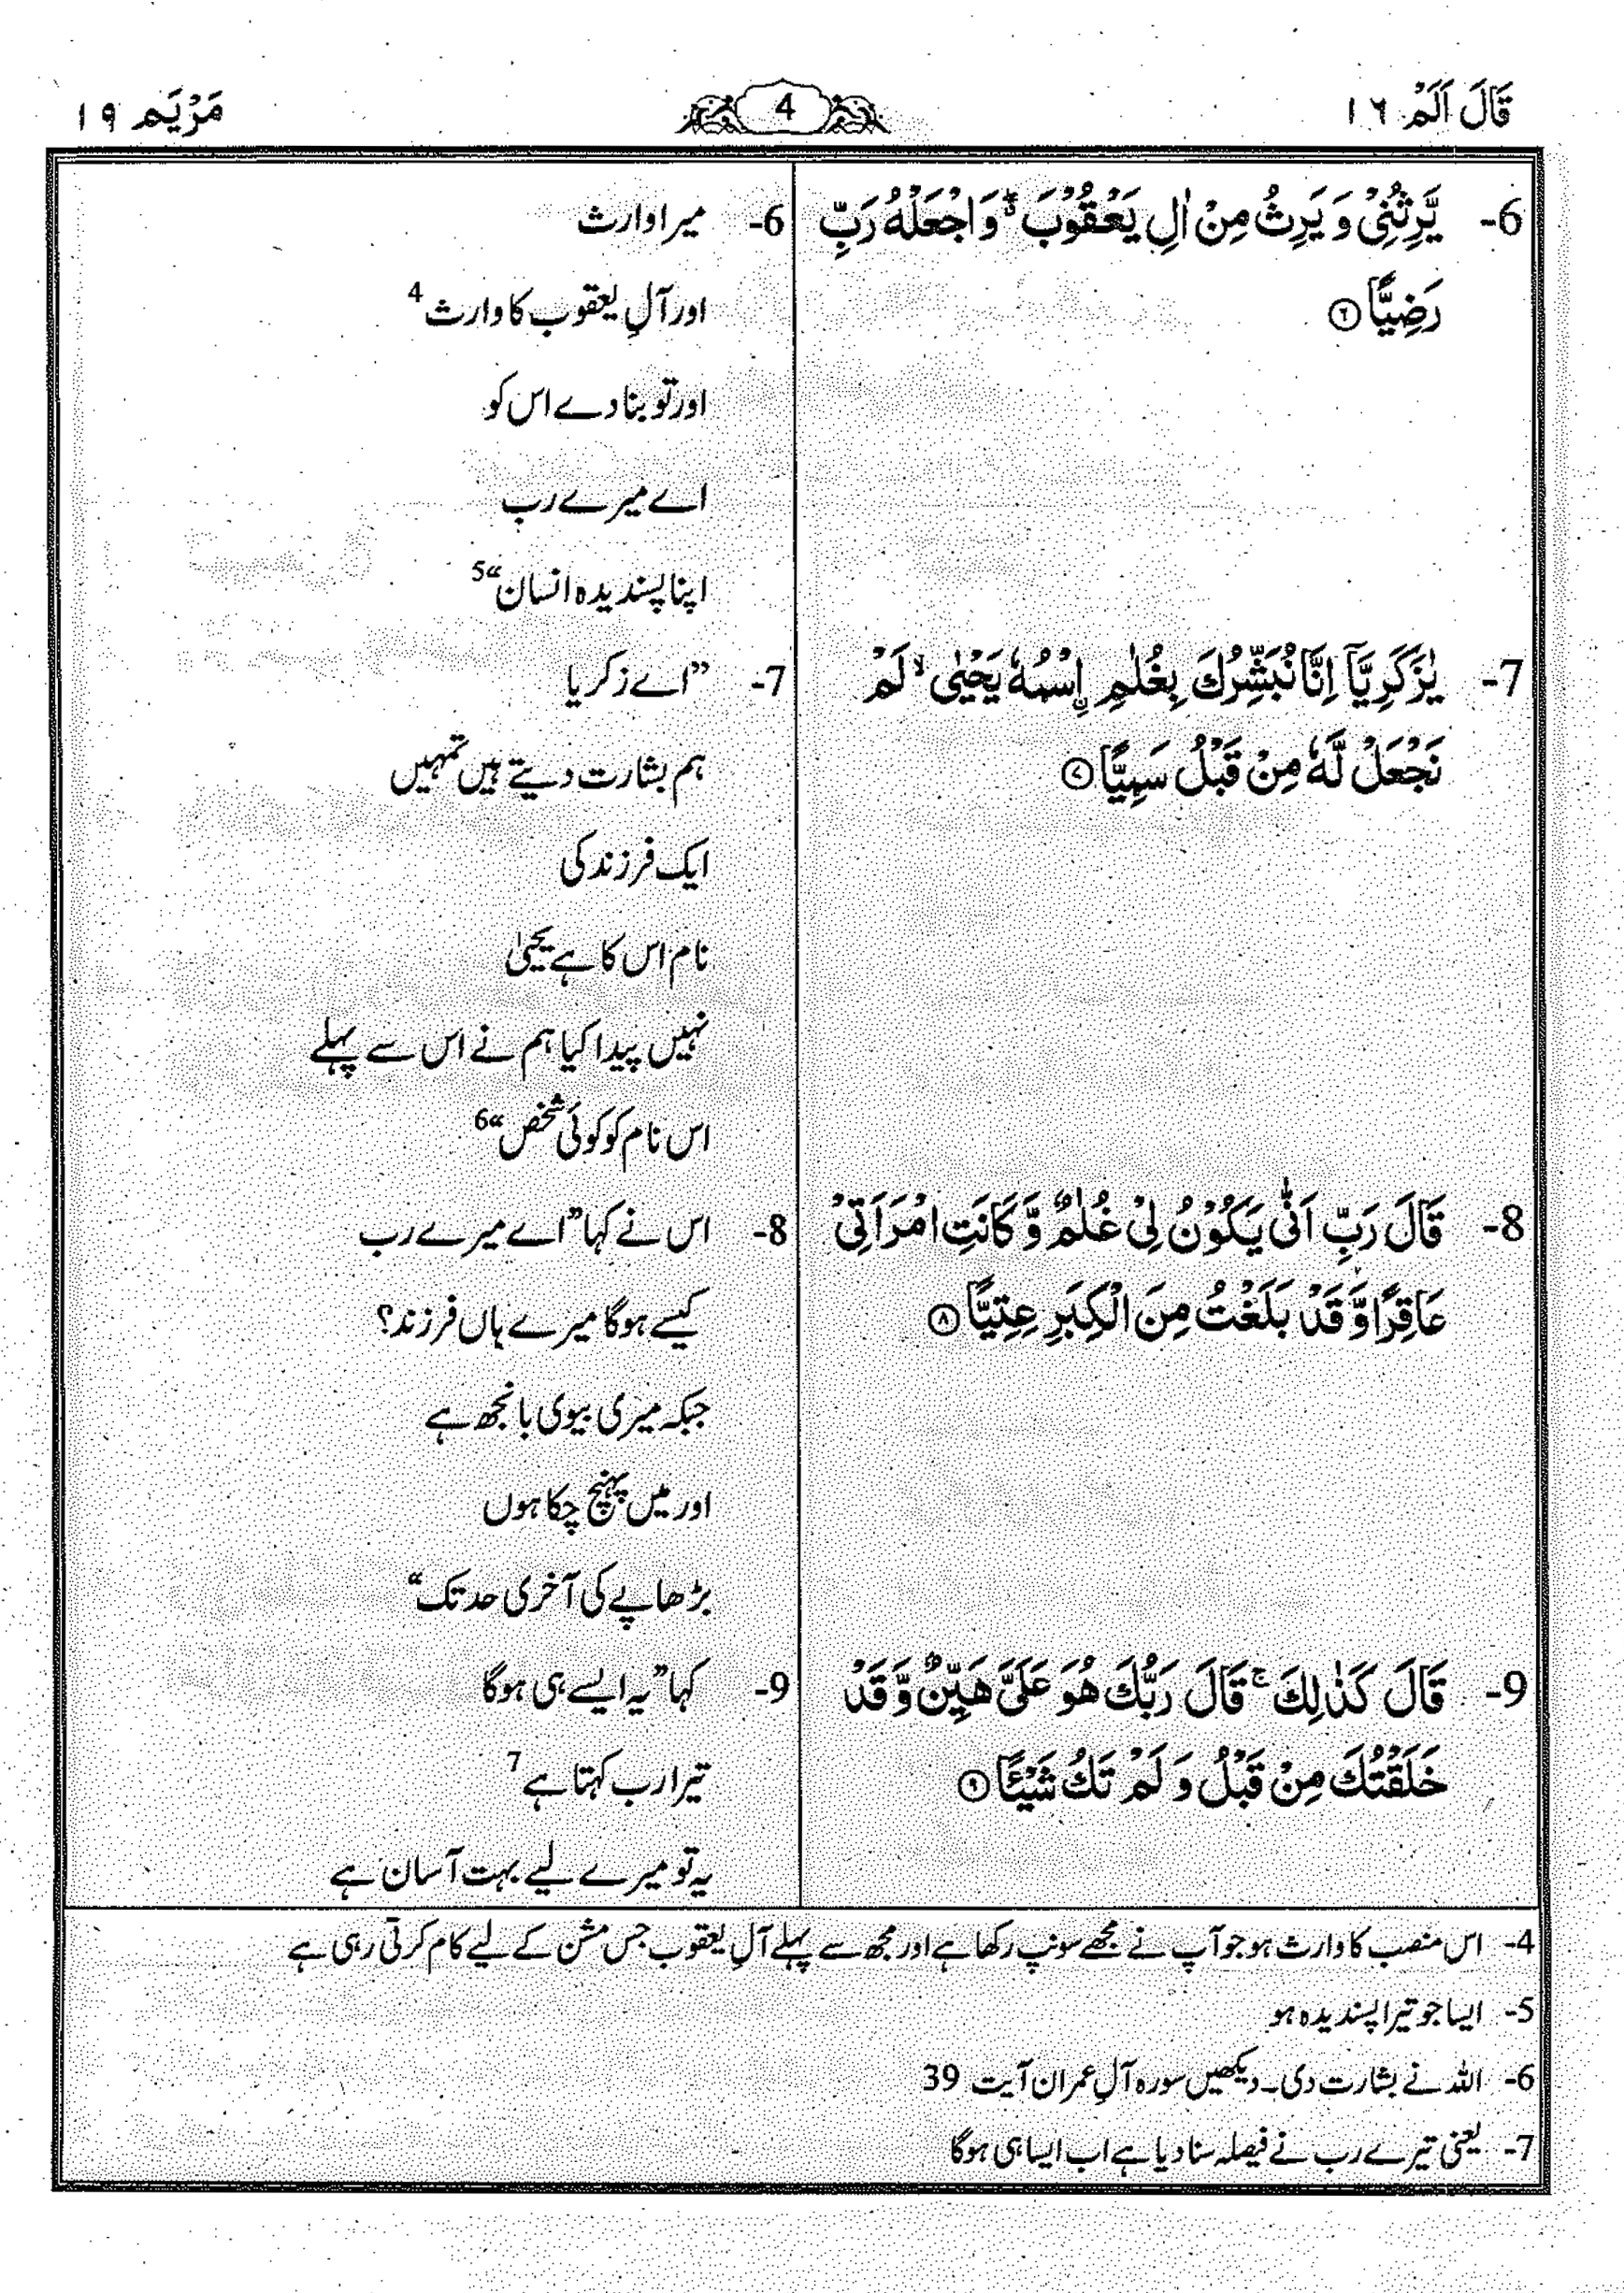 قَالَ اَلَمْ ١٦
4
مَرْيَم ١٩
6- يَّرِثُنِىْ وَ يَرِثُ مِنْ اٰلِ يَعْقُوْبَ ۖ وَ اجْعَلْهُ رَبِّ
رَضِيًّا ۞٦
6- میرا وارث
اور آلِ یعقوب کا وارث 4
اور تو بنا دے اس کو
اے میرے رب
اپنا پسندیدہ انسان“ 5
7- يٰزَكَرِيَّاۤ اِنَّا نُبَشِّرُكَ بِغُلٰمِ اِ۟سْمُهٗ يَحْيٰى ۙ لَمْ
نَجْعَلْ لَّهٗ مِنْ قَبْلُ سَمِيًّا ۞٧
7- ”اے زکریا
ہم بشارت دیتے ہیں تمہیں
ایک فرزند کی
نام اس کا ہے یحییٰ
نہیں پیدا کیا ہم نے اس سے پہلے
اس نام کو کوئی شخص“ 6
8- قَالَ رَبِّ اَنّٰى يَكُوْنُ لِىْ غُلٰمٌ وَّ كَانَتِ امْرَاَتِىْ
عَاقِرًا وَّ قَدْ بَلَغْتُ مِنَ الْكِبَرِ عِتِيًّا ۞٨
8- اس نے کہا ”اے میرے رب
کیسے ہوگا میرے ہاں فرزند؟
جبکہ میری بیوی بانجھ ہے
اور میں پہنچ چکا ہوں
بڑھاپے کی آخری حد تک“
9- قَالَ كَذٰلِكَ ۚ قَالَ رَبُّكَ هُوَ عَلَىَّ هَيِّنٌ وَّ قَدْ
خَلَقْتُكَ مِنْ قَبْلُ وَ لَمْ تَكُ شَيْـًٔا ۞٩
9- کہا ”یہ ایسے ہی ہوگا
تیرا رب کہتا ہے 7
یہ تو میرے لیے بہت آسان ہے
4- اس منصب کا وارث ہو جو آپ نے مجھے سونپ رکھا ہے اور مجھ سے پہلے آلِ یعقوب جس مشن کے لیے کام کرتی رہی ہے
5- ایسا جو تیرا پسندیدہ ہو
6- اللہ نے بشارت دی۔ دیکھیں سورہ آلِ عمران آیت 39
7- یعنی تیرے رب نے فیصلہ سنا دیا ہے اب ایسا ہی ہوگا